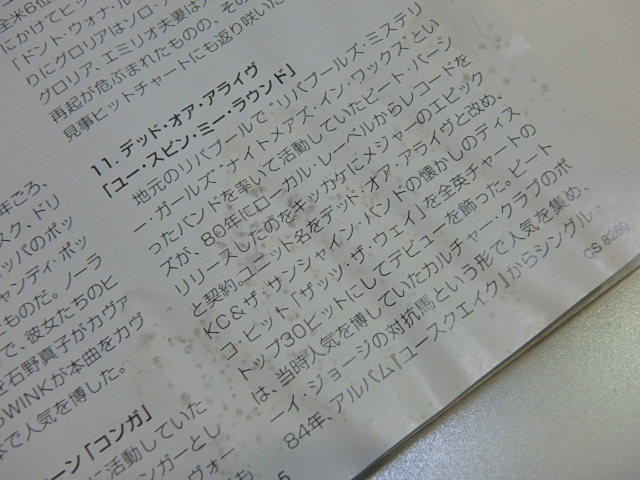 全米6位
にかけてヒッ
「ドント・ウォナ・
りにグロリアはソロ・ア
グロリア、エミリオ夫妻は
再起が危ぶまれたものの、その
見事ヒットチャートにも返り咲いた
11. デッド・オア・アライヴ
「ユー・スピン・ミー・ラウンド」
地元のリバプールで“リバプールズ・ミステリ
ー・ガールズ”“ナイトメアズ・イン・ワックス”とい
ったバンドを率いて活動していたピート・バーン
ズが、80年にローカル・レーベルからレコードを
リリースしたのをキッカケにメジャーのエピック
と契約。ユニット名をデッド・オア・アライヴと改め、
KC&ザ・サンシャイン・バンドの懐かしのディス
コ・ヒット「ザッツ・ザ・ウェイ」を全英チャートの
トップ30ヒットにしてデビューを飾った。ピート
は、当時人気を博していたカルチャー・クラブのボ
ーイ・ジョージの対抗馬という形で人気を集め、
84年、アルバム『ユースクエイク』からシングル・
年ごろ、
スク、ドリ
ッパのポッ
ャンディ・ポッ
ものだ。ノーラ
で、彼女たちのヒ
を石野真子がカヴァ
WINKが本曲をカヴ
本で人気を博した。
ーン「コンガ」
に活動していた
ンガーとし
ヴォー
5